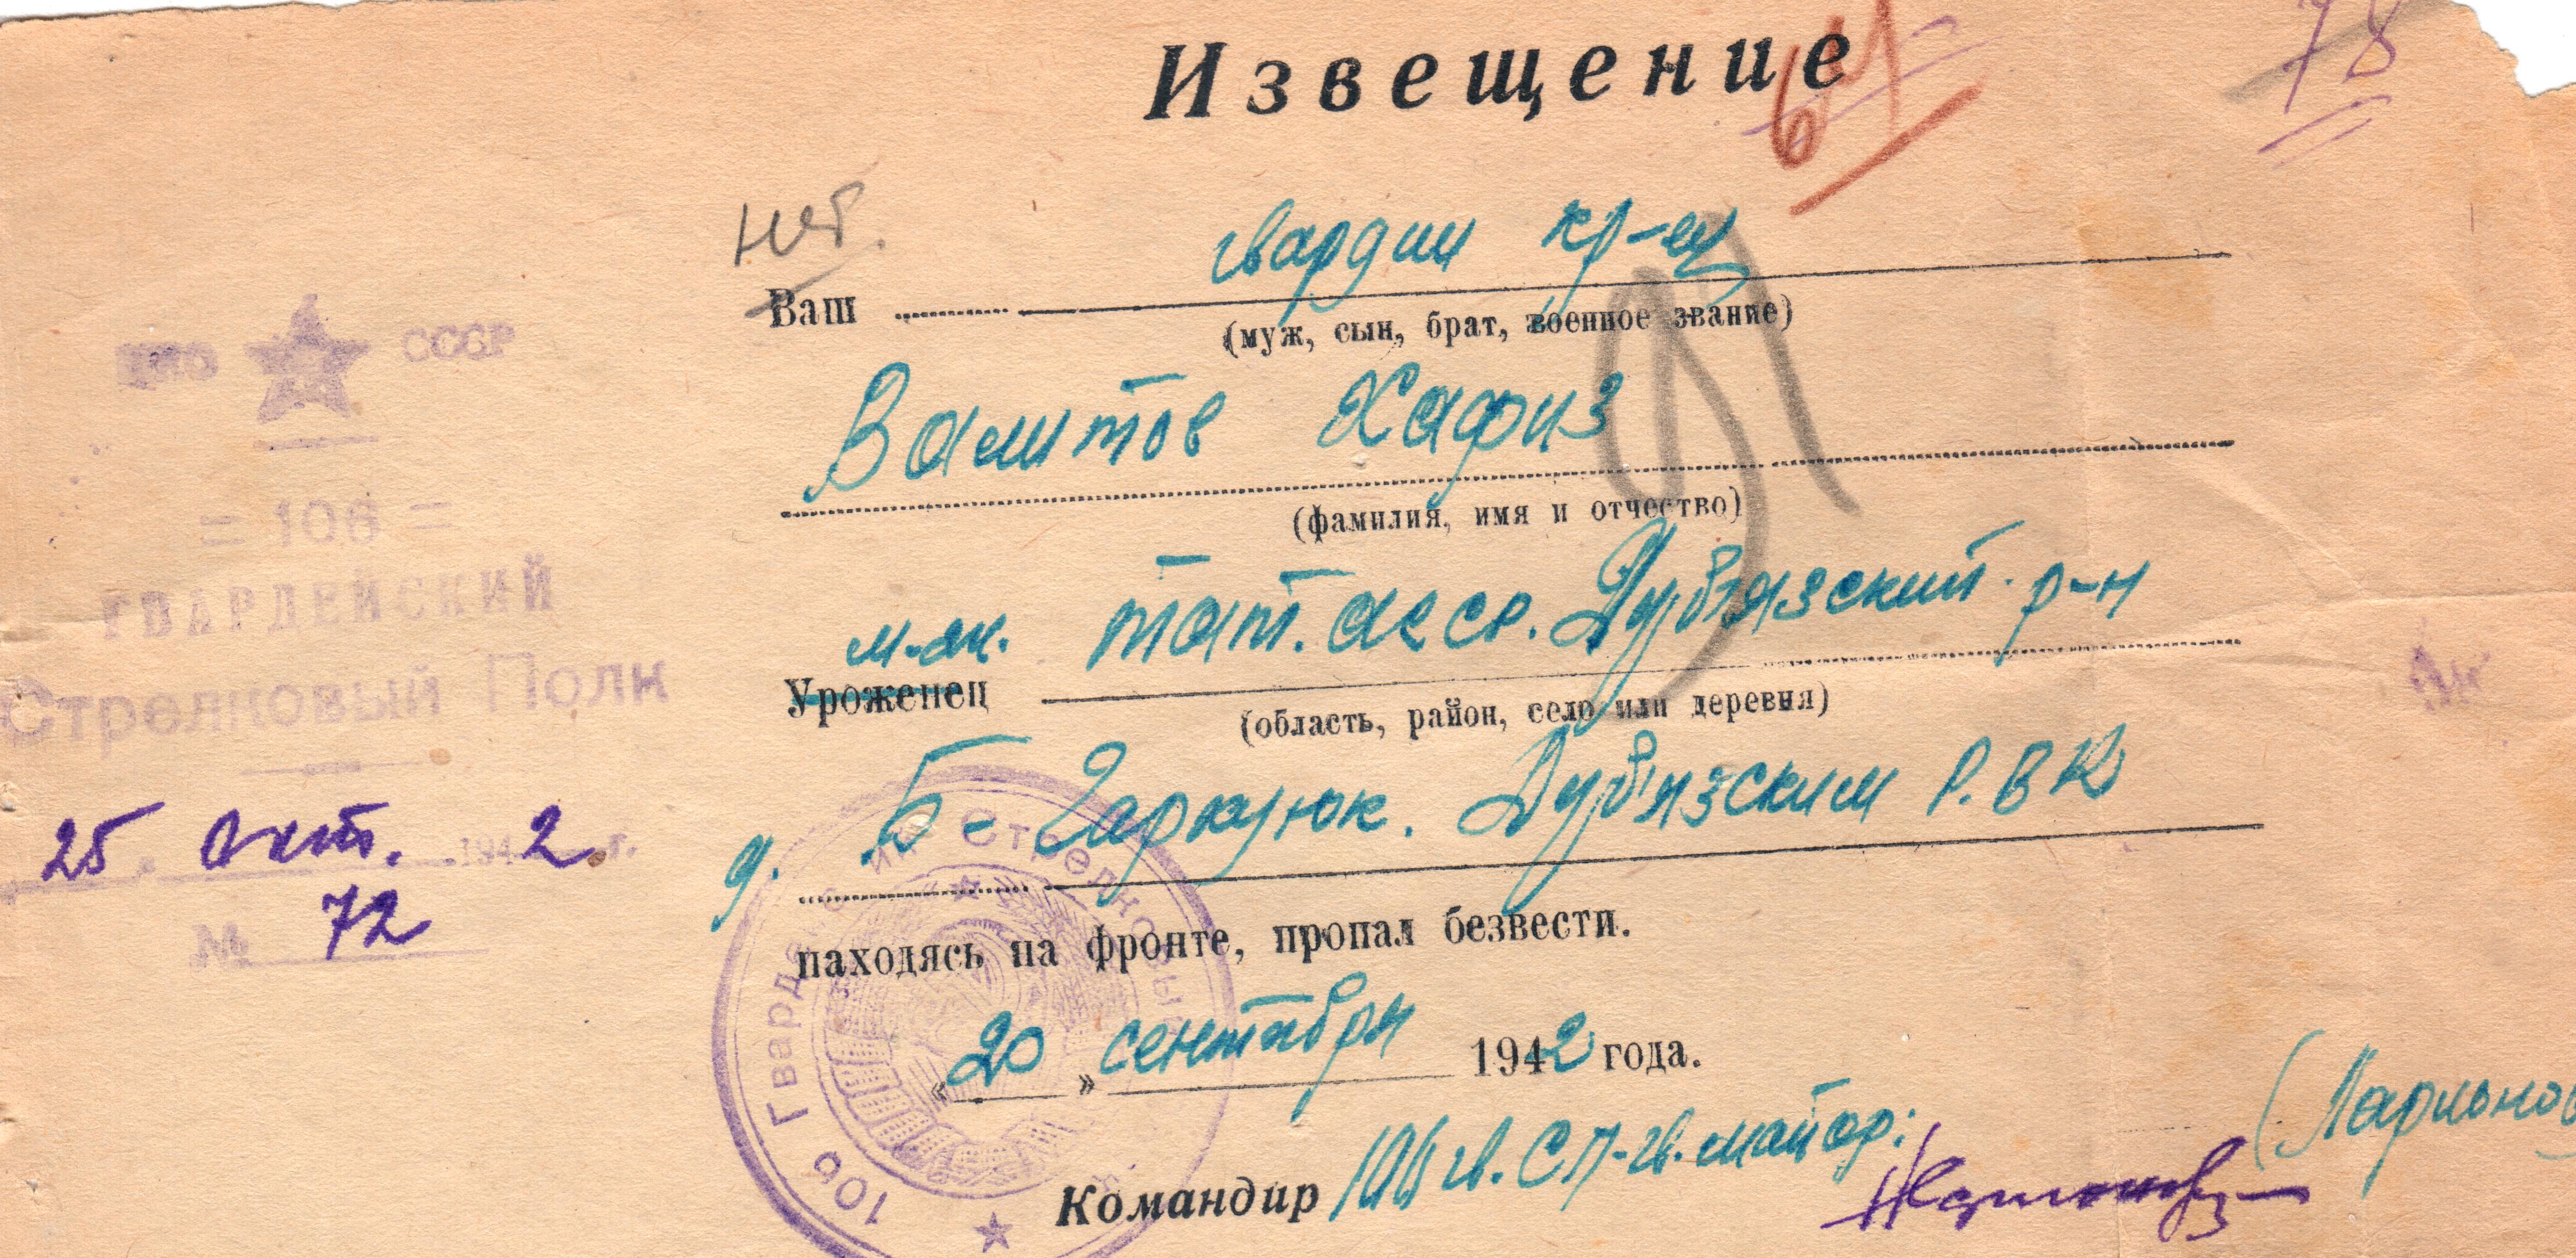 78
64
Извещение
нет.
Ваш гвардии кр-ец
(муж, сын, брат, военное звание)
НКО СССР
Ваитов Хафиз
(фамилия, имя и отчество)
= 106 =
ГВАРДЕЙСКИЙ
Стрелковый Полк
тат. асср. Дубъязский р-н
Уроженец
(область, район, село или деревня)
25 Окт. 1942 г.
№ 72
д. Б-Чаркуюк. Дубъязским Р.В.К
находясь на фронте, пропал безвести.
«20» сентября 1942 года.
Командир 106 гв. СП-гв. майор:
(Ларионов
106 Гвардейский Стрелковый